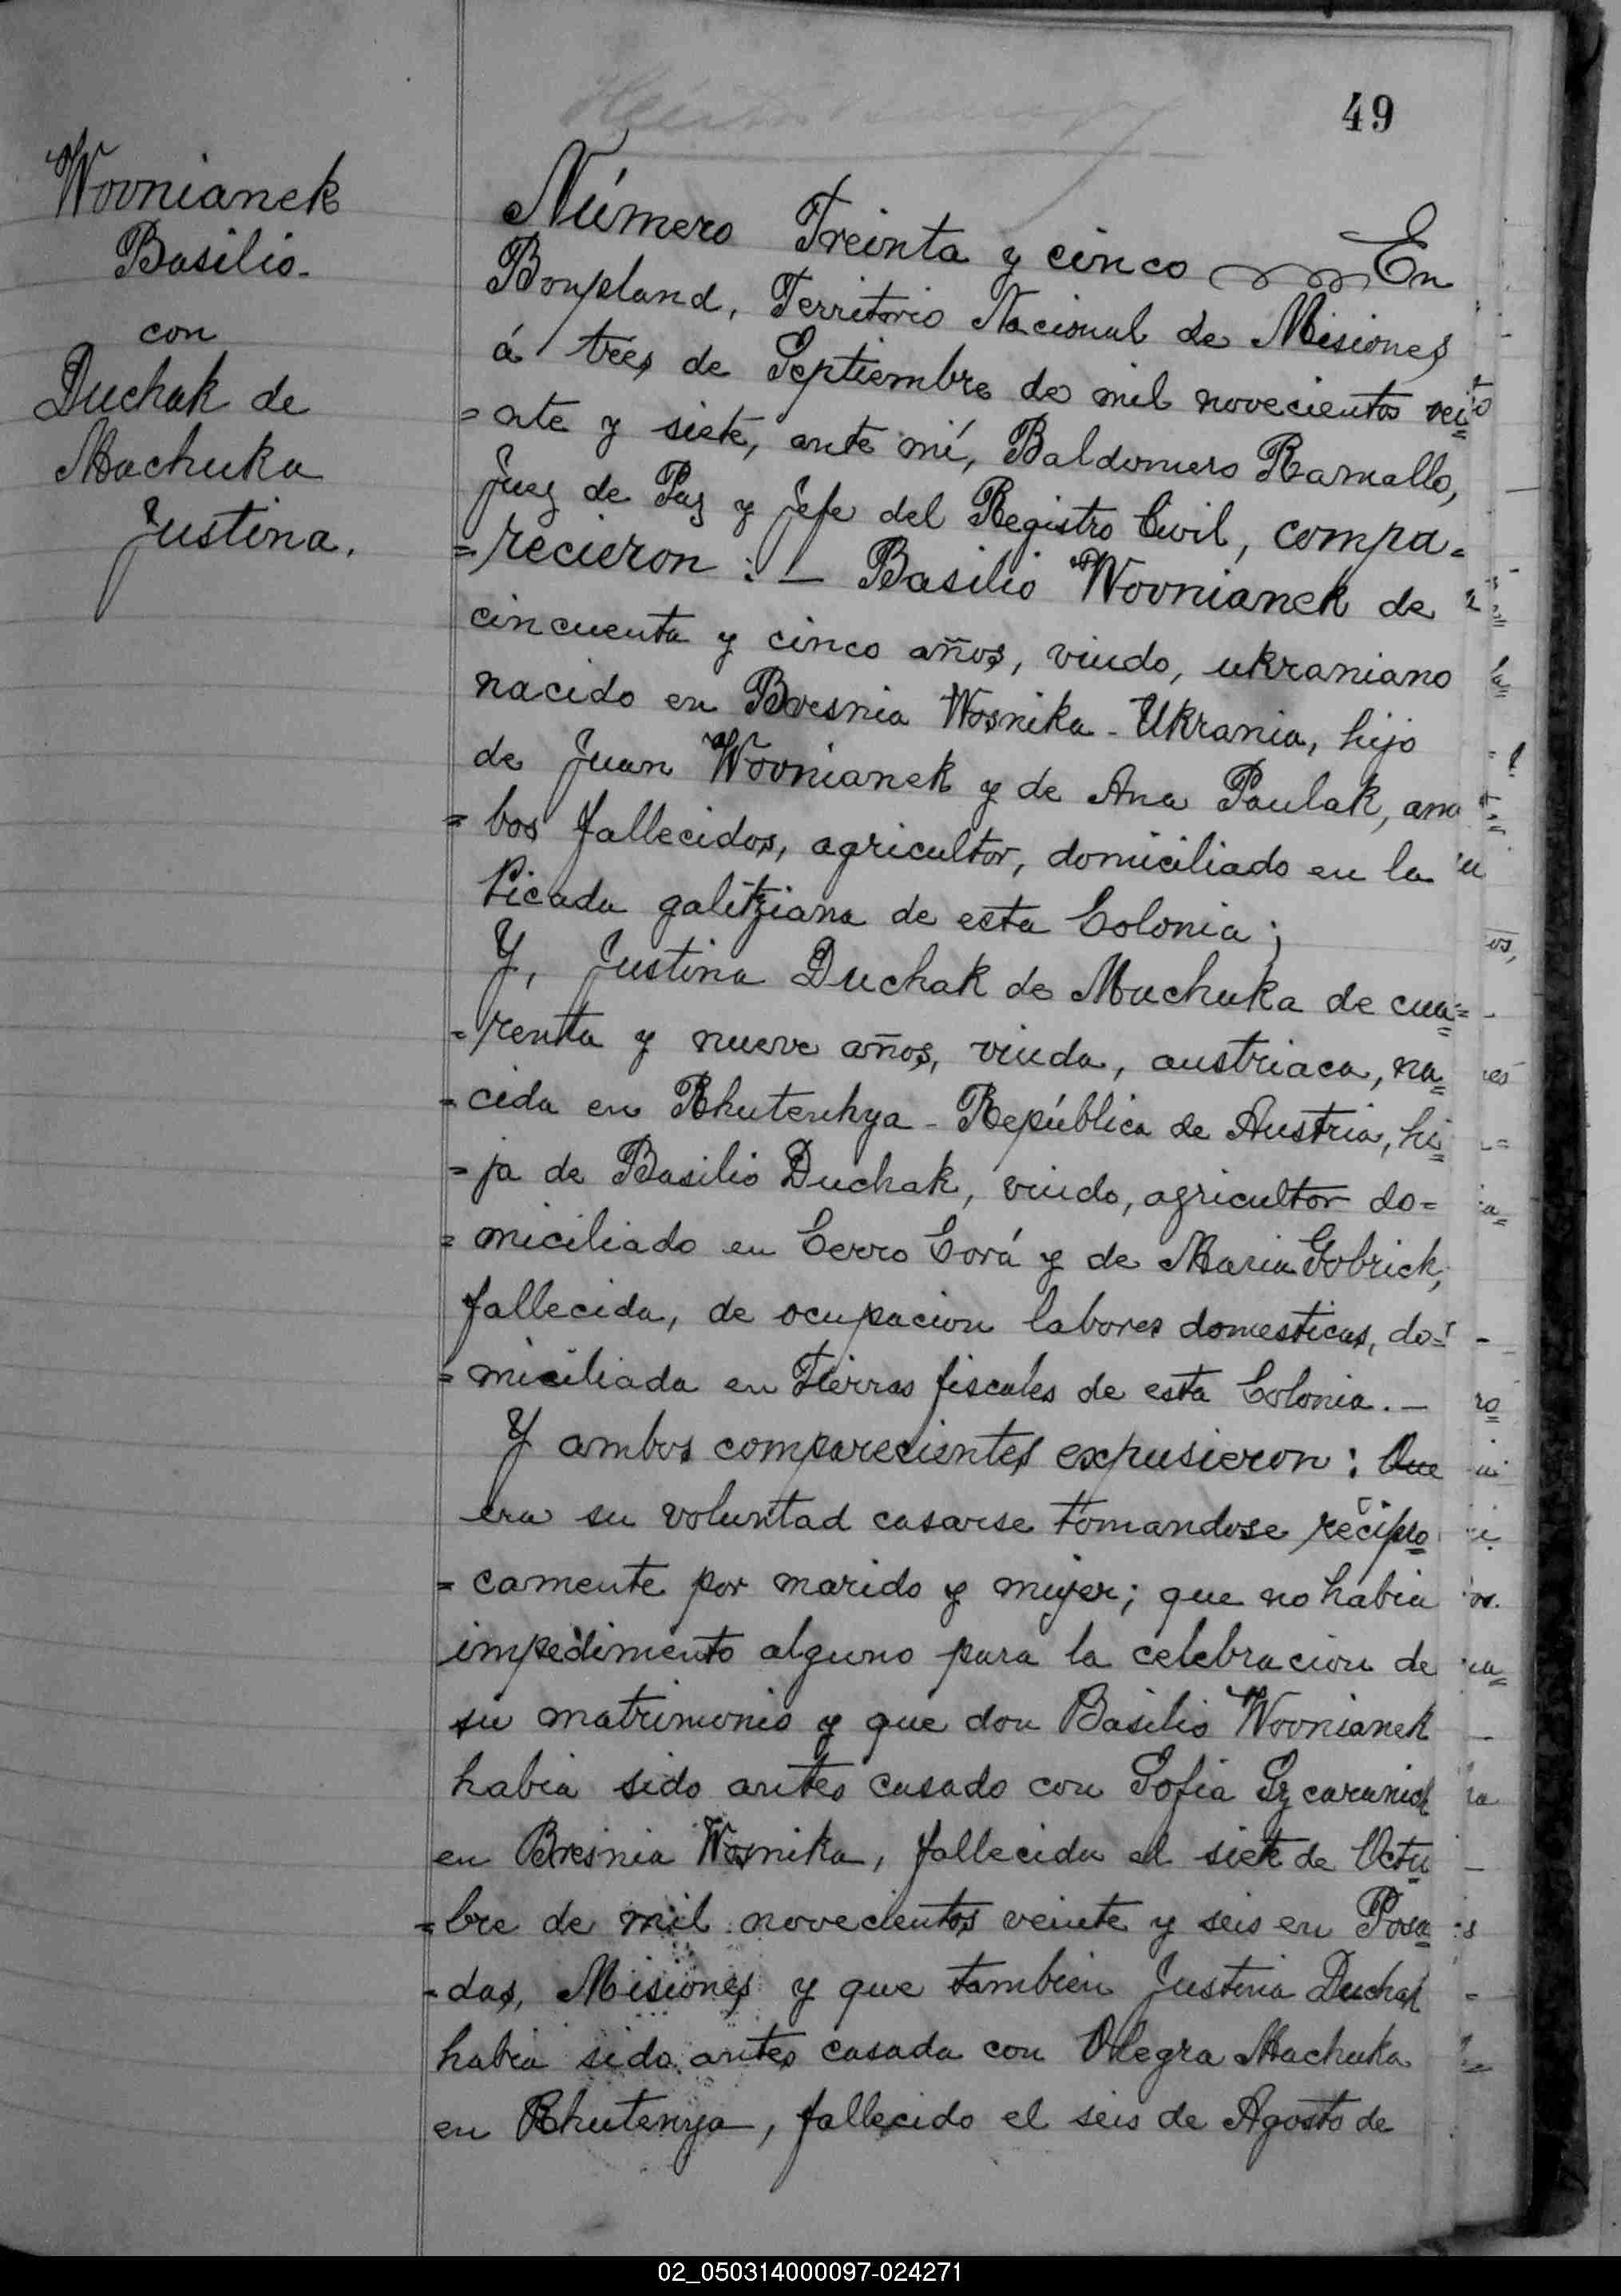 49
Wovnianek
Basilio.
con
Duchak de
Machuka
Justina.
Número Treinta y cinco En
Bonpland, Territorio Nacional de Misiones
á tres de Septiembre de mil novecientos vei=
=nte y siete, ante mí, Baldomero Ramallo,
Juez de Paz y Jefe del Registro Civil, compa=
=recieron :— Basilio Wovnianek de
cincuenta y cinco años, viudo, ukraniano
nacido en Bresnia Wosnika - Ukrania, hijo
de Juan Wovnianek y de Ana Paulak, am
=bos fallecidos, agricultor, domiciliado en la
Picada galitziana de esta Colonia;
Y, Justina Duchak de Machuka de cua=
=renta y nueve años, viuda, austriaca, na=
=cida en Rhutenhya - República de Austria, hi=
=ja de Basilio Duchak, viudo, agricultor do=
=miciliado en Cerro Corá y de Maria Gobrick,
fallecida, de ocupacion labores domesticas, do=
=miciliada en Tierras fiscales de esta Colonia.—
Y ambos comparecientes expusieron: Que
era su voluntad casarse tomandose recipro=
=camente por marido y mujer; que no habia
impedimento alguno para la celebracion de
su matrimonio y que don Basilio Wovnianek
habia sido antes casado con Sofia
en Bresnia Wosnika, fallecida el siete de Octu=
=bre de mil novecientos veinte y seis en Posa=
=das, Misiones y que tambien Justina Duchak
habia sido antes casada con Olegra Machuka
en Rhutenya, fallecido el seis de Agosto de
02_050314000097-024271